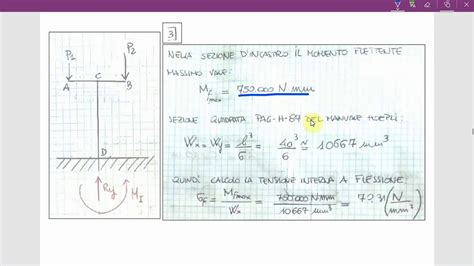 3]
P1
P2
A
C
B
D
Ry
MI
NELLA SEZIONE D'INCASTRO IL MOMENTO FLETTENTE
MASSIMO VALE:
Mfmax = 750.000 N mm
SEZIONE QUADRATA PAG-H-67 DEL MANUALE HOEPLI:
Wx = Wy = l³/6 = 40³/6 ≈ 10667 mm³
QUINDI CALCOLO LA TENSIONE INTERNA A FLESSIONE:
σf = Mfmax/Wx = 750.000 Nmm/10667 mm³ = 70.31 (N/mm²)